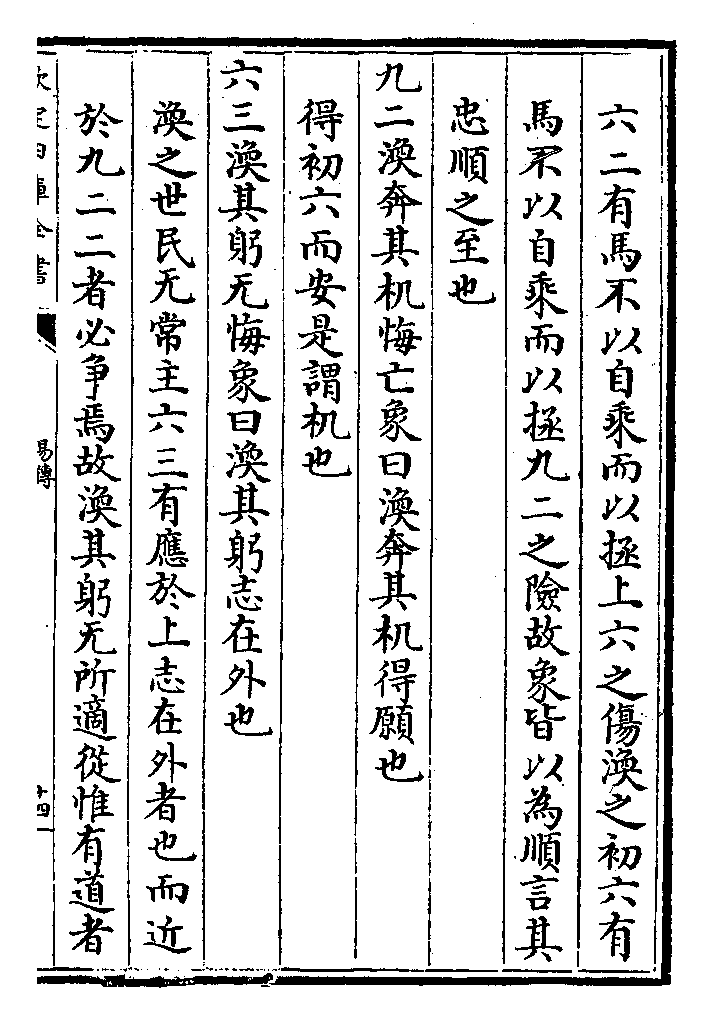 六二有馬不以自乘而以拯上六之傷渙之初六有
馬不以自乘而以拯九二之險故象皆以為順言其
忠順之至也
九二渙奔其机悔亡象曰渙奔其机得願也
得初六而安是謂机也
六三渙其躬无悔象曰渙其躬志在外也
渙之世民无常主六三有應於上志在外者也而近
於九二二者必争焉故渙其躬无所適從惟有道者
欽定四庫全書
易傳
十四